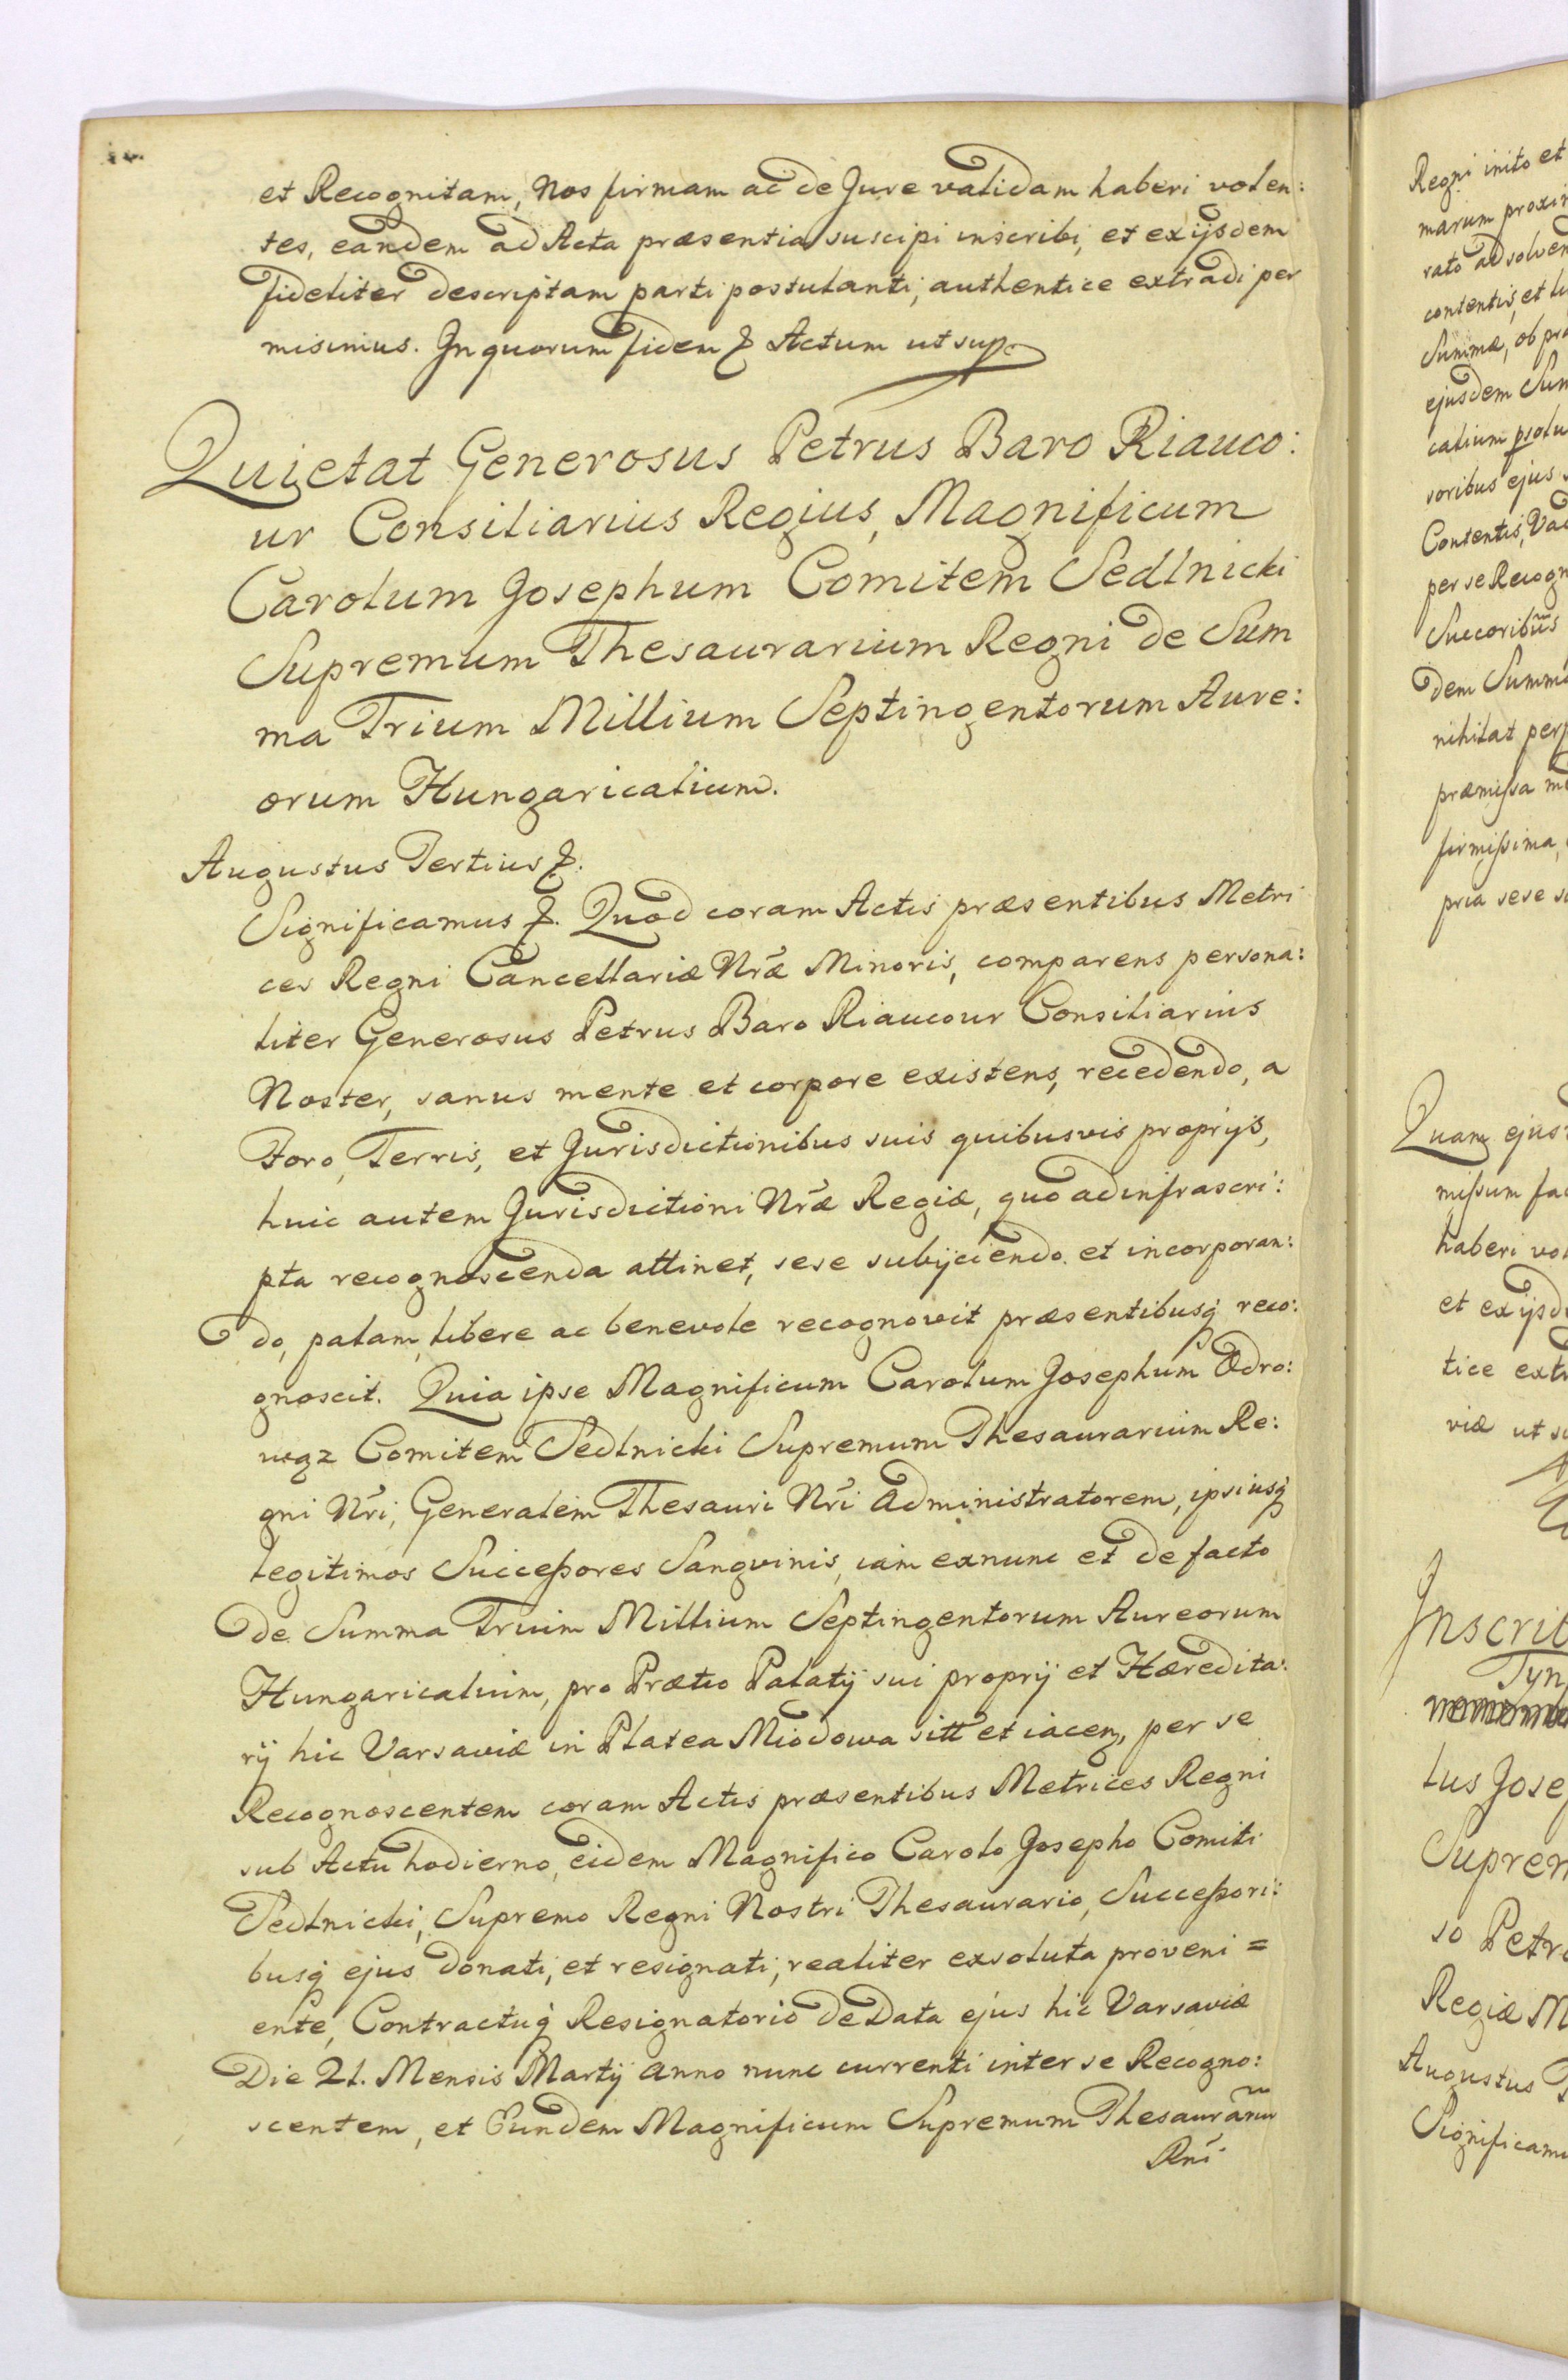 et Recognitam, Nos firmam ac de Jure validam haberi volen:
tes, eandem ad Acta præsentia suscipi inscribi, et exijsdem
fideliter descriptam parti postulanti, authentice extradi per
misimus. In quorum fidem &. Actum ut sup.
Quietat Generosus Petrus Baro Riauco:
ur Consiliarius Regius, Magnificum
Carolum Josephum Comitem Sedlnicki
Supremum Thesaurarium Regni de Sum
ma Trium Millium Septingentorum Aure:
orum Hungaricalium.
Augustus Tertius &.
Significamus &. Quod coram Actis præsentibus Metri
ces Regni Cancellariæ Nræ Minoris, comparens persona:
liter Generosus Petrus Baro Riaucour Consiliarius
Noster, sanus mente et corpore existens, recedendo, a
Foro, Terris, et Jurisdictionibus suis quibusvis proprijs,
huic autem Jurisdictioni Nræ Regiæ, quo ad infrascri:
pta recognoscenda attinet, sese subijciendo et incorporan:
do, palam, libere ac benevole recognovit præsentibusq reco:
gnoscit. Quia ipse Magnificum Carolum Josephum Odro:
wąz Comitem Sedlnicki Supremum Thesaurarium Re:
gni Nri, Generalem Thesauri Nri Administratorem, ipsiusq
legitimos Successores Sangvinis, iam exnunc et de facto
de Summa Trium Millium Septingentorum Aureorum
Hungaricalium, pro Prætio Palatij sui proprij et Hæredita:
rij hic Varsaviæ in Platea Miodowa sitt et iacen, per se
Recognoscentem coram Actis præsentibus Metrices Regni
sub Actu hodierno, eidem Magnifico Carolo Josepho Comiti
Sedlnicki, Supremo Regni Nostri Thesaurario, Successori:
busq ejus donati, et resignati, realiter exsoluta proveni=
ente, Contractuq Resignatorio de Data ejus hic Varsaviæ
Die 21. Mensis Martij Anno nunc currenti inter se Recogno:
scentem, et Eundem Magnificum Supremum Thesaurariu
Rni
Regni inito et
marum
rato ad
contentis, et
Summæ, ob
ejusdem
catium
soribus ejus
Contentis,
per se
Succoribus
dem
nihilat
præmissa
firmissima,
pria sese
Quam
missum
haberi
et
tice
viæ ut
Inscrib
Tyn
tus Jose
Suprem
so Petr
Regiæ M
Augustus
Significam